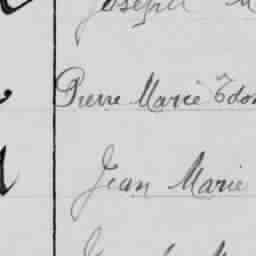 Joseph M
Pierre Marie Edo
Jean Marie